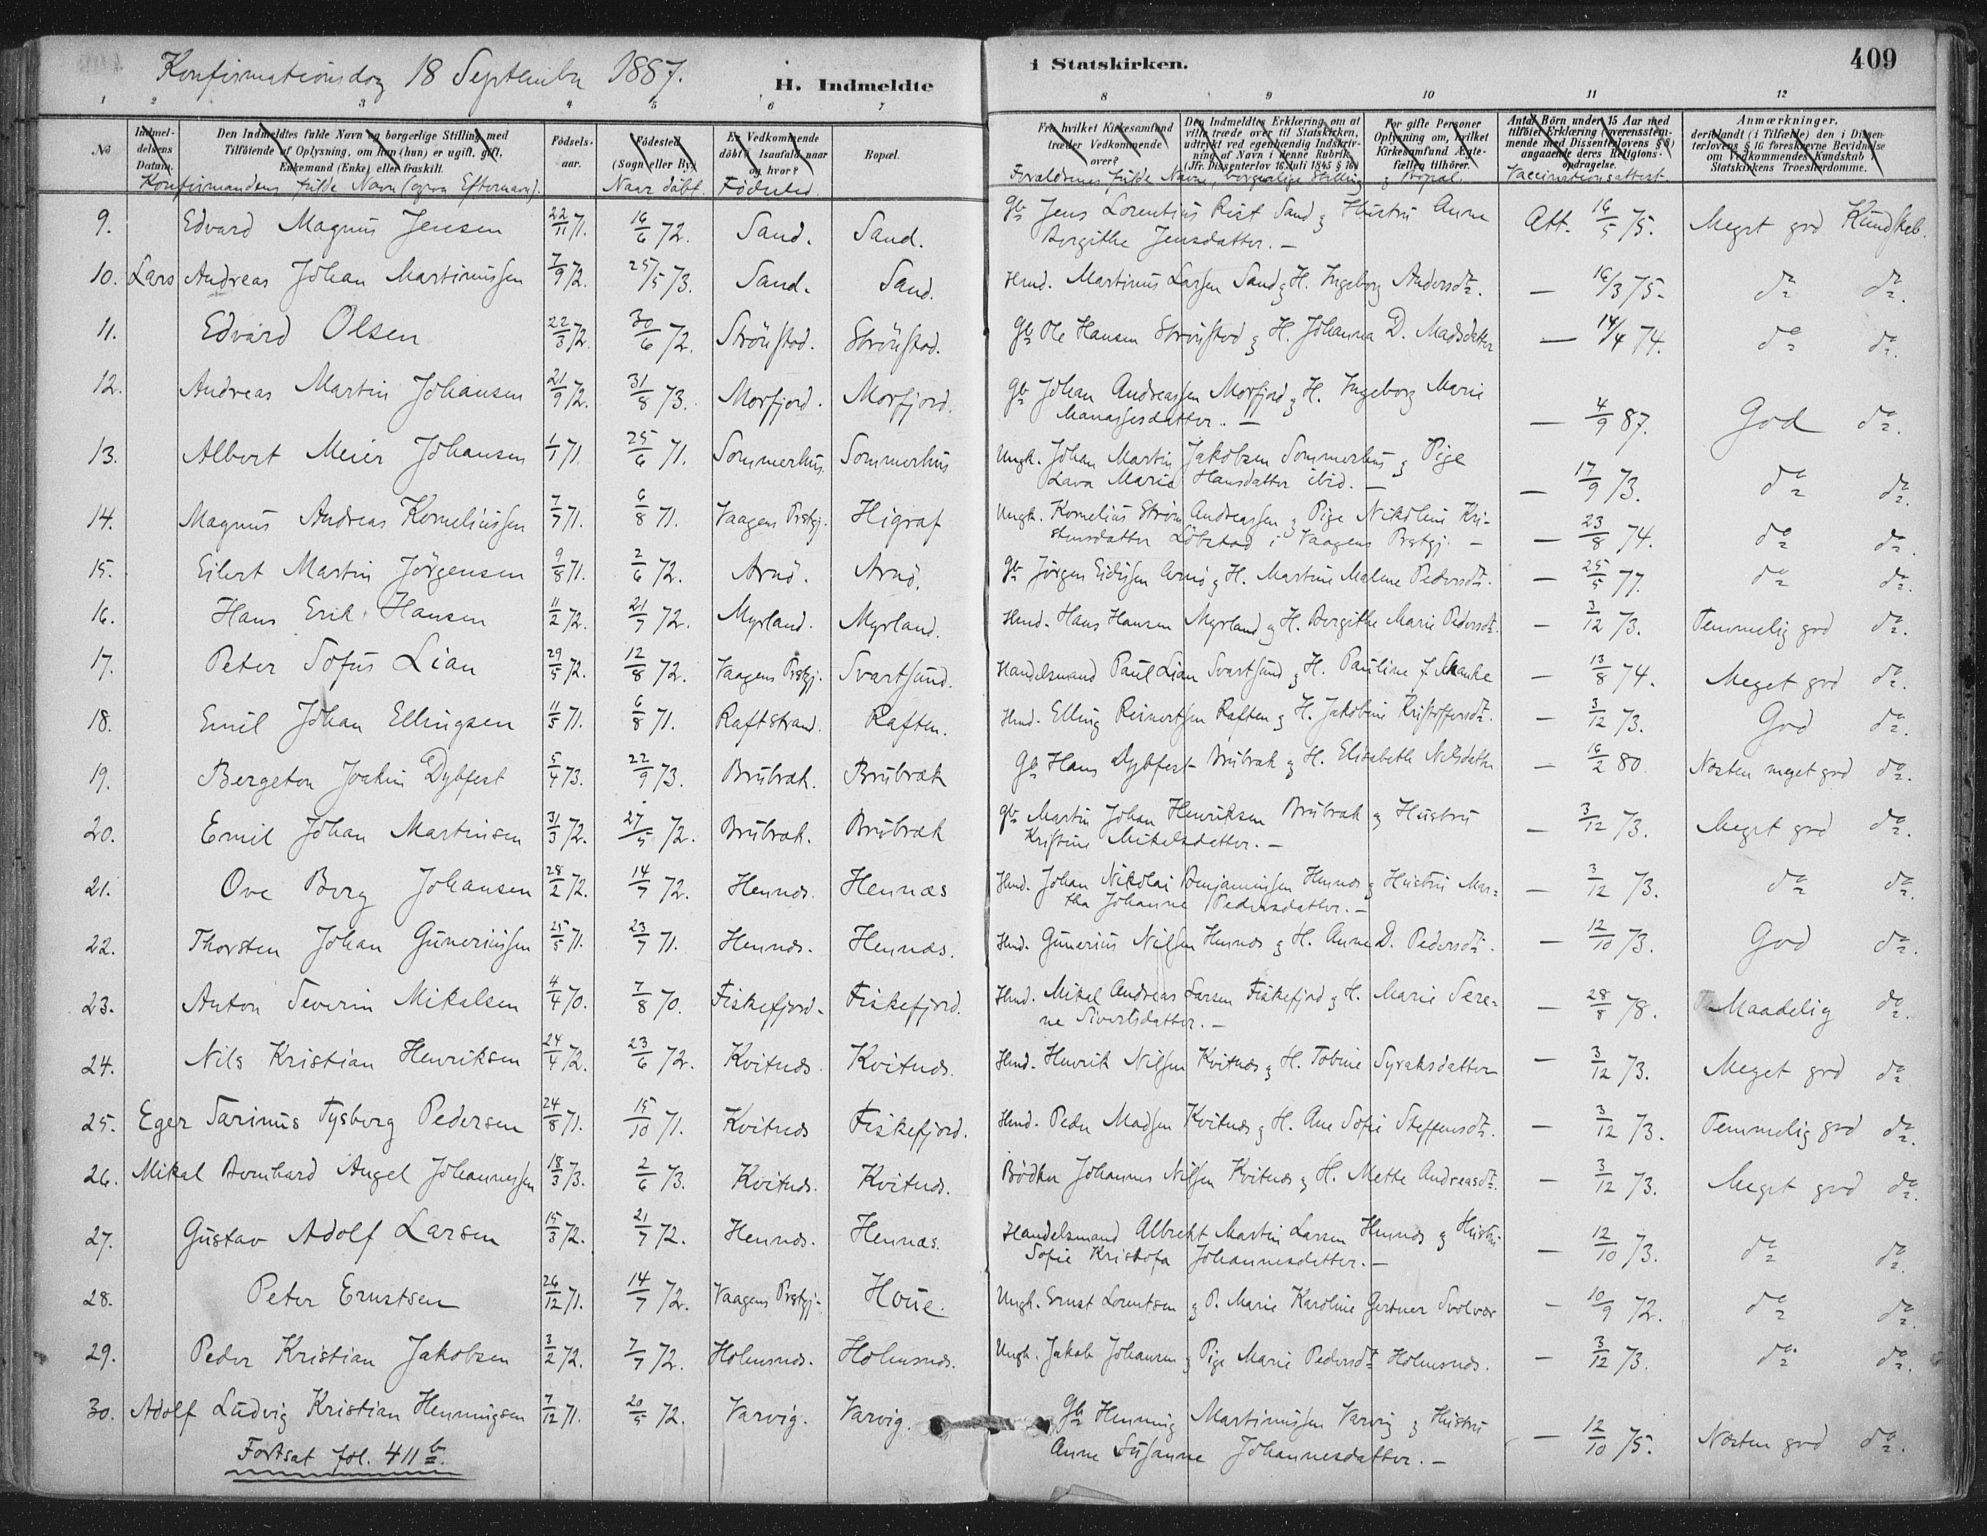 Konfirmationsdag 18 September 1887.
H. Indmeldte i Statskirken.
409
1 2 3 4 5 6 7 8 9 10 11 12
No
Indmel-
delsens
Datum.
Den Indmeldtes fulde Navn og borgerlige Stilling med
Tilföiende af Oplysning, om han (hun) er ugift, gift,
Enkemand (Enke) eller fraskilt.
Födsels-
aar.
Födested
(Sogn eller By).
Er Vedkommende
döbt? Isaafald naar
og hvor?
Bopæl.
Fra hvilket Kirkesamfund
træder Vedkommende
over?
Den Indmeldtes Erklæring om at
ville træde over til Statskirken,
udtrykt ved egenhændig Indskriv-
ning af Navn i denne Rubrik.
(Jfr. Dissenterlov 16 Juli 1845 § 16)
For gifte Personer
Oplysning om, hvilket
Kirkesamfund Ægte-
fællen tilhörer.
Antal Börn under 15 Aar med
tilföiet Erklæring (overensstem-
mende med Dissenterlovens § 8)
angaaende deres Religions-
opdragelse.
Anmærkninger,
deriblandt (i Tilfælde) den i Dissen-
terlovens § 16 foreskrevne Bevidnelse
om Vedkommendes Kundskab i
Statskirkens Troeslærdomme.
Konfirmandens fulde Navn (ogsaa Efternavn). Naar döbt. Födested. Forældrenes fulde Navne, borgerlige Stilling og Bopæl. Vaccinationsattest.
9. Edvard Magnus Jensen 22/11 71. 16/6 72. Sand. Sand. Gbr Jens Lorentius Rist Sand og Hustru Anne Att. 16/5 75. Meget god Kundskab.
Bergithe Jensdatter. —
10. Lars Andreas Johan Martinussen 7/9 72. 25/5 73. Sand. Sand. Hmd. Martinus Larsen Sand og H. Ingeborg Andersdtr. — 16/3 75. do do.
11. Edvard Olsen 22/3 72. 30/6 72. Strönstad. Strönstad. Gbr Ole Hansen Strönstad og H. Johanna D. Madsdatter — 14/4 74. do do.
12. Andreas Martin Johansen 21/9 72. 31/8 73. Morfjord. Morfjord. Gbr Johan Andreassen Morfjord og H. Ingeborg Marie
Manassesdatter. — — 4/9 87. God do.
13. Albert Meier Johansen 1/1 71. 25/6 71. Sommerhus. Sommerhus Ungk. Johan Martin Jakobsen Sommerhus og Pige
Lava Marie Hansdatter ibid. — — 17/9 73. do do.
14. Magnus Andreas Korneliussen 7/7 71. 6/8 71. Vaagens Prstgj. Higraf Ungk. Kornelius Ström Andreassen og Pige Nikoline Kri-
stensdatter i Vaagens Prstgj. — — 23/8 74. do do.
15. Eilert Martin Jörgensen 9/8 71. 2/6 72. Arnö. Arnö. Gbr Jörgen Eidissen Arnö og H. Martine Malene Pedersdtr. — 25/5 77. do do.
16. Hans Erik Hansen 11/2 72. 21/7 72. Myrland. Myrland. Hmd. Hans Hansen Myrland og H. Bergithe Marie Pedersdtr. — 3/12 73. Temmelig god do.
17. Peter Sofus Lian 29/5 72. 12/8 72. Vaagens Prstgj. Svartsund. Handelsmand Paul Lian Svartsund og H. Pauline f. Schanke — 13/8 74. Meget god do.
18. Emil Johan Ellingsen 11/5 71. 6/8 71. Raftstrand. Raften. Hmd. Elling Reinertsen Raften og H. Jakobine Kristoffersdtr. — 3/12 73. God do.
19. Bergeton Joakim Dybfest 5/4 73. 22/9 73. Brubræk. Brubræk Gbr Hans Dybfest Brubræk og H. Elisabeth Nilsdatter — 16/2 80. Næsten meget god do.
20. Emil Johan Martinsen 31/3 72. 27/5 72. Brubræk. Brubræk Gbr Martin Johan Henriksen Brubræk og Hustru — 3/12 73. Meget god do.
Kristine Mikelsdatter. —
21. Ove Berg Johansen 28/2 72. 14/7 72. Hennæs. Hennæs Hmd. Johan Nikolai Benjaminsen Hennæs og Hustru Mar- — 3/12 73. do do.
tha Johanne Pedersdatter. —
22. Thorsten Johan Guneriussen 25/5 71. 23/7 71. Hennæs. Hennæs. Hmd. Gunerius Nilsen Hennæs og H. Anne D. Pedersdtr. — 12/10 73. God do.
23. Anton Severin Mikalsen 4/4 70. 7/8 70. Fiskefjord. Fiskefjord. Hmd. Mikal Andreas Larsen Fiskefjord og H. Marie Sere- — 28/8 78. Maadelig do.
ne Sivertsdatter. —
24. Nils Kristian Henriksen 24/4 72. 23/6 72. Kvitnæs. Kvitnæs. Hmd. Henrik Nilsen Kvitnæs og H. Tobine Syraksdatter — 3/12 73. Meget god do.
25. Eger Sarinus Tysberg Pedersen 24/8 71. 15/10 71. Kvitnæs Fiskefjord. Hmd. Peder Madsen Kvitnæs og H. Ane Sofie Steffensdtr. — 3/12 73. Temmelig god do.
26. Mikal Bernhard Angel Johannessen 18/3 73. 2/6 73. Kvitnæs. Kvitnæs. Bödker Johannes Nilsen Kvitnæs og H. Mette Andreasdtr. — 3/12 73. Meget god do.
27. Gustav Adolf Larsen 15/3 72. 21/7 72. Hennæs. Hennæs. Handelsmand Albrekt Martin Larsen Hennæs og Hustru
Sofie Kristofa Johannesdatter. — — 12/10 73. do do.
28. Peter Ernstsen 26/12 71. 14/7 72. Vaagens Prstgj. Houe. Ungk. Ernst Lorentsen og P. Marie Karoline Gertner Svolvær — 10/9 72. do do.
29. Peder Kristian Jakobsen 3/2 72. 7/7 72. Holmsnæs. Holmsnæs. Ungk. Jakob Johansen og Pige Marie Pedersdtr Holmsnæs. — 3/12 73. do do.
30. Adolf Ludvig Kristian Henningsen 7/12 71. 20/5 72. Varvig. Varvig. Gbr Henning Martinussen Varvig og Hustru
Anne Susanne Johannesdatter. — — 12/10 75. Næsten god do.
Fortsat fol. 411 b.